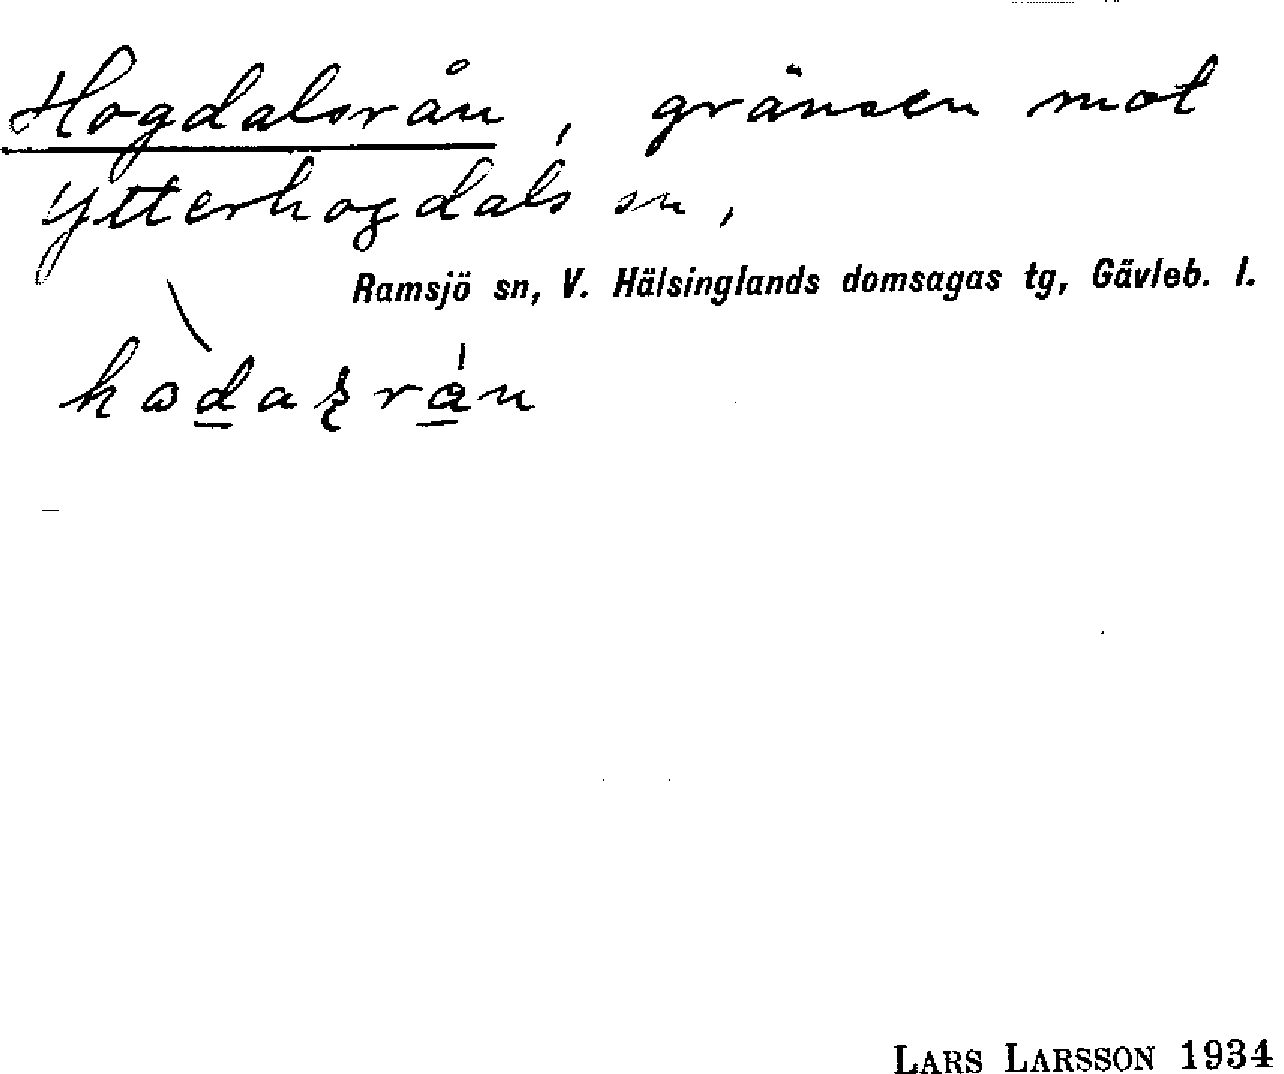 Hogdalsrån, gränsen mot
Ytterhogdals sn,
Ramsjö sn, V. Hälsinglands domsagas tg, Gävleb. l.
LARS LARSSON 1934